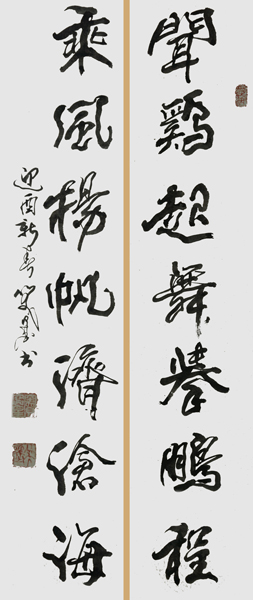 聞鷄起舞攀鵬程
乘風楊帆濟滄海
迎酉新春書